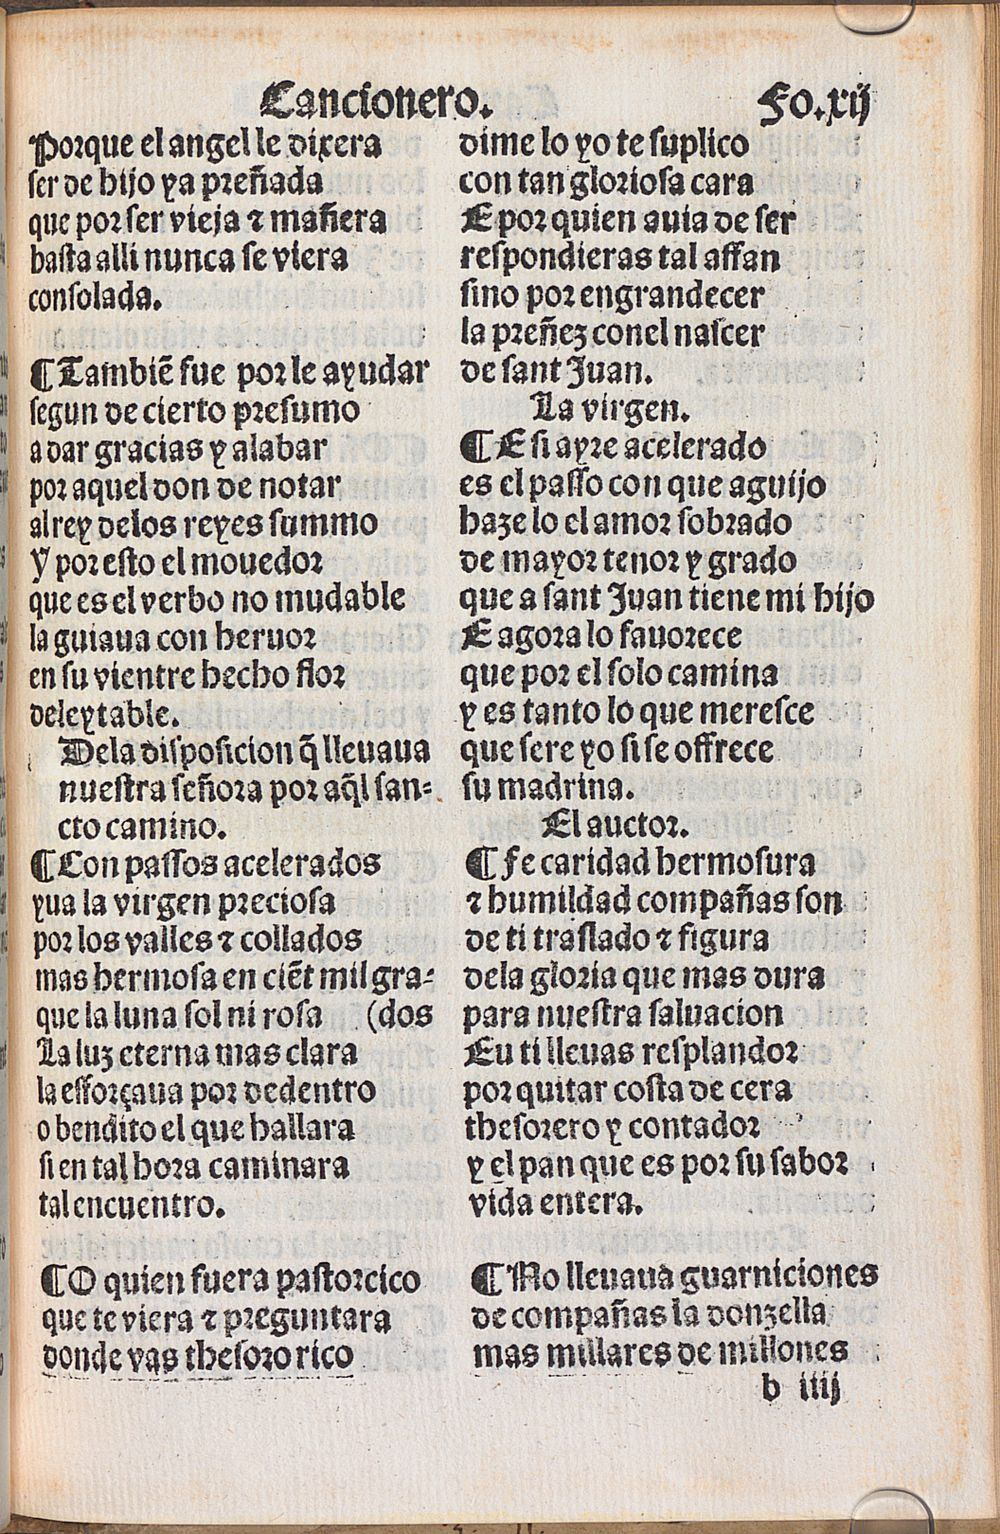 Cancionero. Fo.xij
Porque el angel le dixera
ser de hijo ya preñada
que por ser vieja ⁊ mañera
hasta alli nunca se viera
consolada.
¶ Tambiẽ fue por le ayudar
segun de cierto presumo
a dar gracias y alabar
por aquel don de notar
al rey delos reyes summo
Y por esto el mouedor
que es el verbo no mudable
la guiaua con heruor
en su vientre hecho flor
deleytable.
Dela disposicion q̃ lleuaua
nuestra señora por aq̃l san-
cto camino.
¶ Con passos acelerados
yua la virgen preciosa
por los valles ⁊ collados
mas hermosa en ciẽt mil gra-
que la luna sol ni rosa (dos
La luz eterna mas clara
la esforçaua por dedentro
o bendito el que hallara
si en tal hora caminara
tal encuentro.
¶ O quien fuera pastorcico
que te viera ⁊ preguntara
donde vas thesoro rico
dime lo yo te suplico
con tan gloriosa cara
E por quien auia de ser
respondieras tal affan
sino por engrandecer
la preñez conel nascer
de sant Juan.
La virgen.
¶ E si ayre acelerado
es el passo con que aguijo
haze lo el amor sobrado
de mayor tenor y grado
que a sant Juan tiene mi hijo
E agora lo fauorece
que por el solo camina
y es tanto lo que meresce
que sere yo si se offrece
su madrina.
El auctor.
¶ Fe caridad hermosura
⁊ humildad compañas son
de ti traslado ⁊ figura
dela gloria que mas dura
para nuestra saluacion
Eu ti lleuas resplandor
por quitar costa de cera
thesorero y contador
y el pan que es por su sabor
vida entera.
¶ No lleuaua guarniciones
de compañas la donzella
mas millares de millones
b iiij